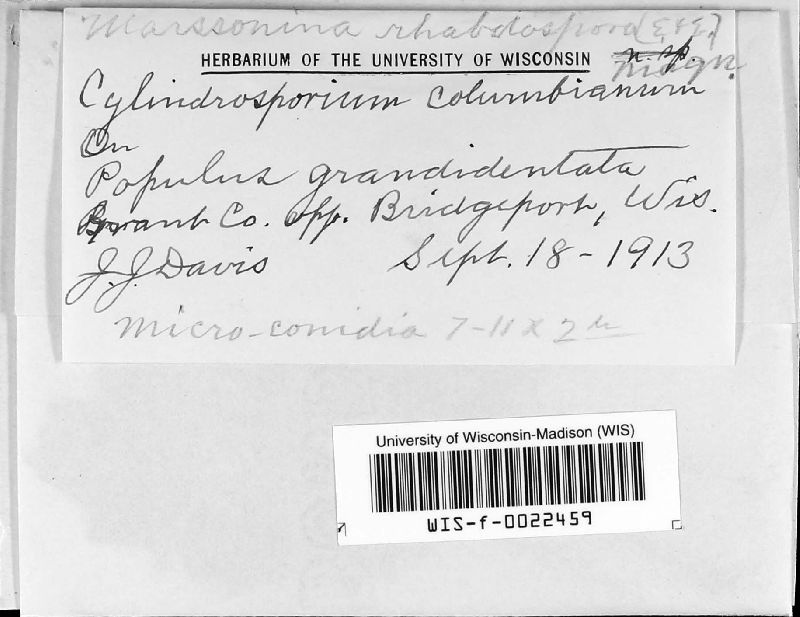 Marssonina rhabdospora (E. & E.)
Magn.
HERBARIUM OF THE UNIVERSITY OF WISCONSIN
n. sp.
Cylindrosporium columbianum
On
Populus grandidentata
Grant Co. opp. Bridgeport, Wis.
J. J. Davis Sept. 18-1913
Micro-conidia 7-11 x 2 µ
University of Wisconsin-Madison (WIS)
WIS-f-0022459